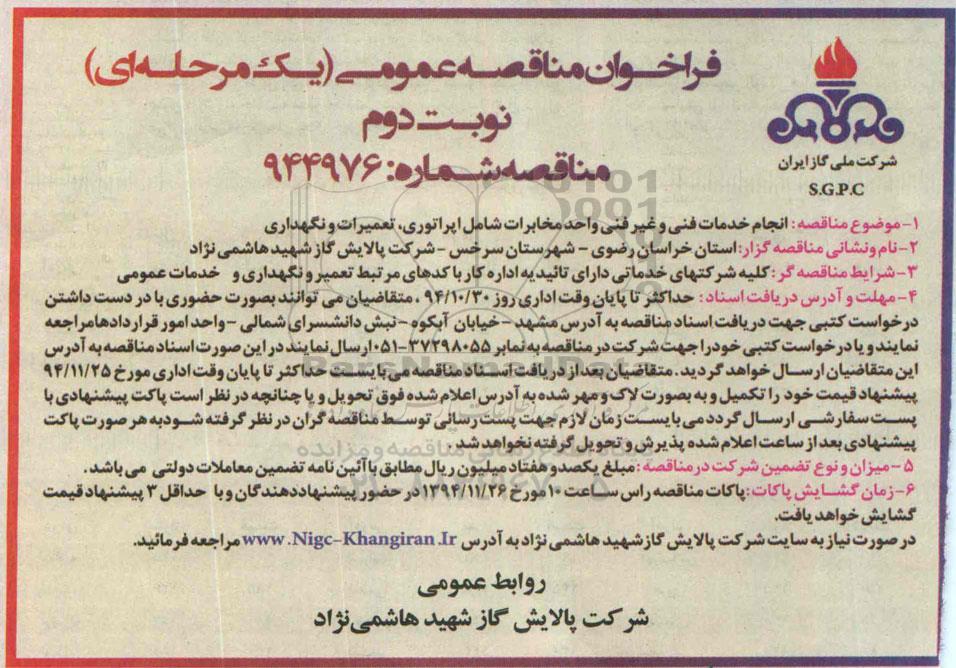 فراخوان مناقصه عمومی (یک مرحله‌ای)
نوبت دوم
مناقصه شماره: ۹۴۴۹۷۶
شرکت ملی گاز ایران
S.G.P.C
۱- موضوع مناقصه: انجام خدمات فنی و غیر فنی واحد مخابرات شامل اپراتوری، تعمیرات و نگهداری
۲- نام ونشانی مناقصه گزار: استان خراسان رضوی - شهرستان سرخس - شرکت پالایش گاز شهید هاشمی نژاد
۳- شرایط مناقصه گر: کلیه شرکتهای خدماتی دارای تائیدیه اداره کار با کدهای مرتبط تعمیر و نگهداری و خدمات عمومی
۴- مهلت و آدرس دریافت اسناد: حداکثر تا پایان وقت اداری روز ۹۴/۱۰/۳۰ ، متقاضیان می توانند بصورت حضوری با در دست داشتن
درخواست کتبی جهت دریافت اسناد مناقصه به آدرس مشهد - خیابان آبکوه - نبش دانشسرای شمالی - واحد امور قراردادها مراجعه
نمایند و یا درخواست کتبی خود را جهت شرکت در مناقصه به نمابر ۳۷۲۹۸۰۵۵-۰۵۱ ارسال نمایند در این صورت اسناد مناقصه به آدرس
این متقاضیان ارسال خواهد گردید. متقاضیان بعد از دریافت اسناد مناقصه می بایست حداکثر تا پایان وقت اداری مورخ ۹۴/۱۱/۲۵
پیشنهاد قیمت خود را تکمیل و به بصورت لاک و مهر شده به آدرس اعلام شده فوق تحویل و یا چنانچه در نظر است پاکت پیشنهادی با
پست سفارشی ارسال گردد می بایست زمان لازم جهت پست رسانی توسط مناقصه گران در نظر گرفته شود به هر صورت پاکت
پیشنهادی بعد از ساعت اعلام شده پذیرش و تحویل گرفته نخواهد شد.
۵- میزان و نوع تضمین شرکت در مناقصه: مبلغ یکصد و هفتاد میلیون ریال مطابق با آئین نامه تضمین معاملات دولتی می باشد.
۶- زمان گشایش پاکات: پاکات مناقصه راس ساعت ۱۰ مورخ ۱۳۹۴/۱۱/۲۶ در حضور پیشنهاددهندگان و با حداقل ۳ پیشنهاد قیمت
گشایش خواهد یافت.
در صورت نیاز به سایت شرکت پالایش گاز شهید هاشمی نژاد به آدرس www.Nigc-Khangiran.Ir مراجعه فرمائید.
روابط عمومی
شرکت پالایش گاز شهید هاشمی‌نژاد